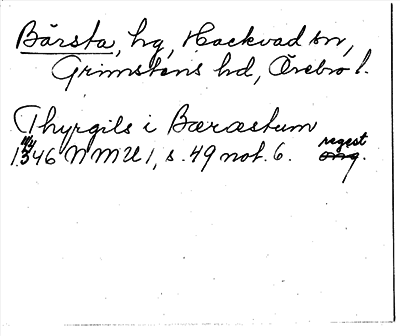 Bärsta, hg, Hackvad sn,
Grimstens hd, Örebro l.
Thyrgils i Bæræstum
1346 NMU 1, s. 49 not. 6. regest